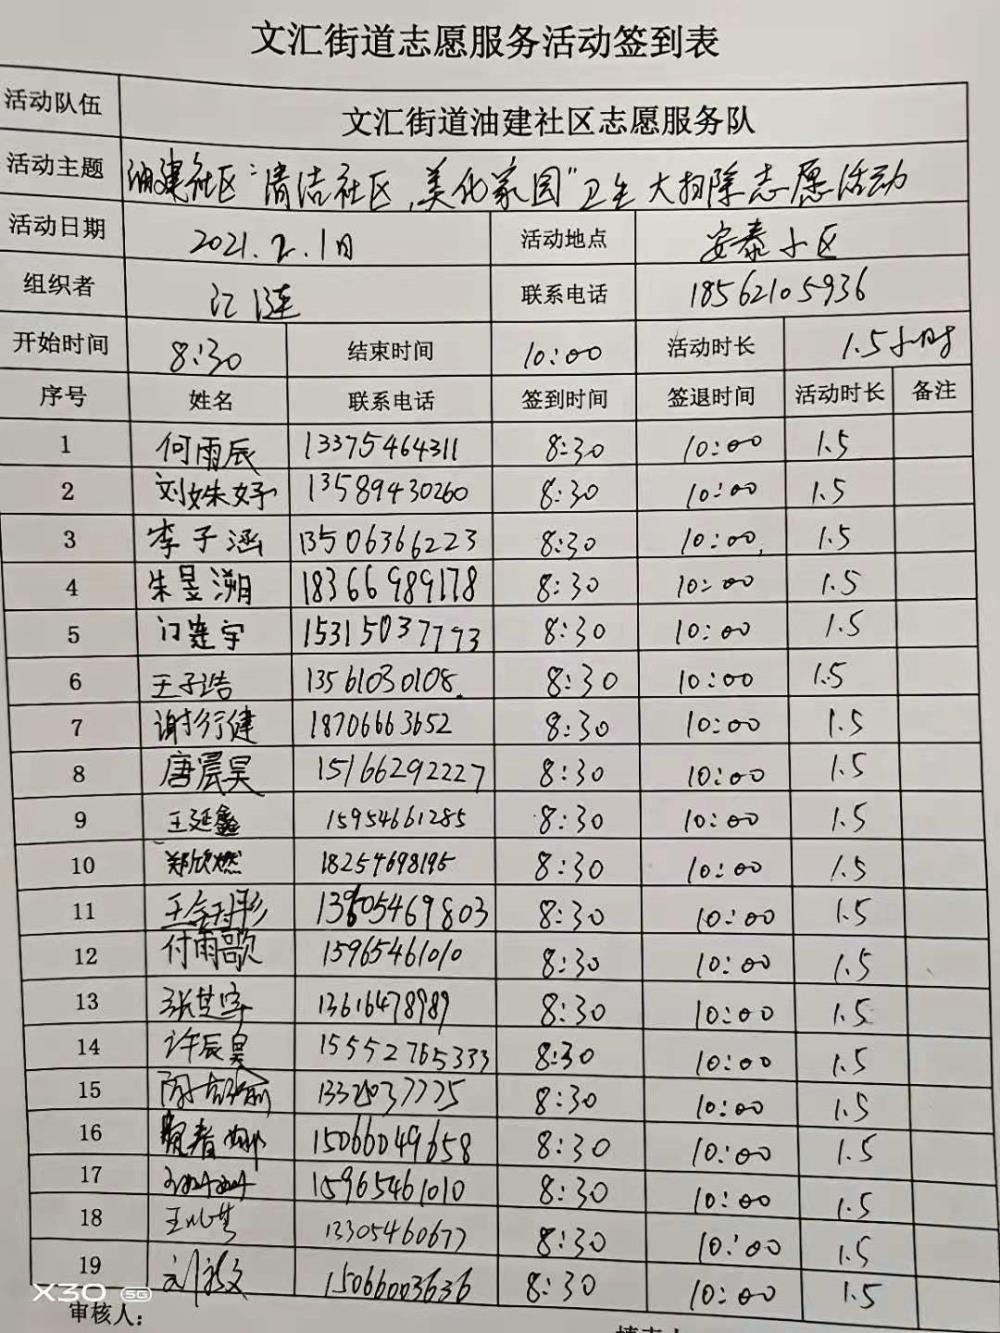 文汇街道志愿服务活动签到表
活动队伍 文汇街道油建社区志愿服务队
活动主题 油建社区“清洁社区,美化家园”卫生大扫除志愿活动
活动日期 2021.2.1日 活动地点 安泰小区
组织者 江涟 联系电话 18562105936
开始时间 8:30 结束时间 10:00 活动时长 1.5小时
序号 姓名 联系电话 签到时间 签退时间 活动时长 备注
1 何雨辰 13375464311 8:30 10:00 1.5
2 刘姝妤 13589430260 8:30 10:00 1.5
3 李子涵 13506366223 8:30 10:00 1.5
4 朱昱溯 18366989178 8:30 10:00 1.5
5 门建宇 15315037793 8:30 10:00 1.5
6 王子浩 13561030108. 8:30 10:00 1.5
7 谢行健 18706663652 8:30 10:00 1.5
8 唐震昊 15166292227 8:30 10:00 1.5
9 王延鑫 15954661285 8:30 10:00 1.5
10 郑欣燃 18254698195 8:30 10:00 1.5
11 8:30 10:00 1.5
12 付雨歌 15965461010 8:30 10:00 1.5
13 13616478989 8:30 10:00 1.5
14 许辰昊 15552765333 8:30 10:00 1.5
15 8:30 10:00 1.5
16 15066049658 8:30 10:00 1.5
17 15965461010 8:30 10:00 1.5
18 13305460677 8:30 10:00 1.5
19 15066003636 8:30 10:00 1.5
X30 5G
审核人：